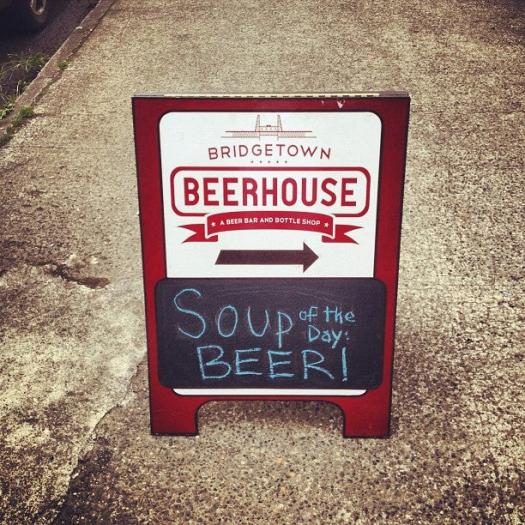 BRIDGETOWN
BEERHOUSE
A BEER BAR AND BOTTLE SHOP
SOUP of the Day:
BEER!